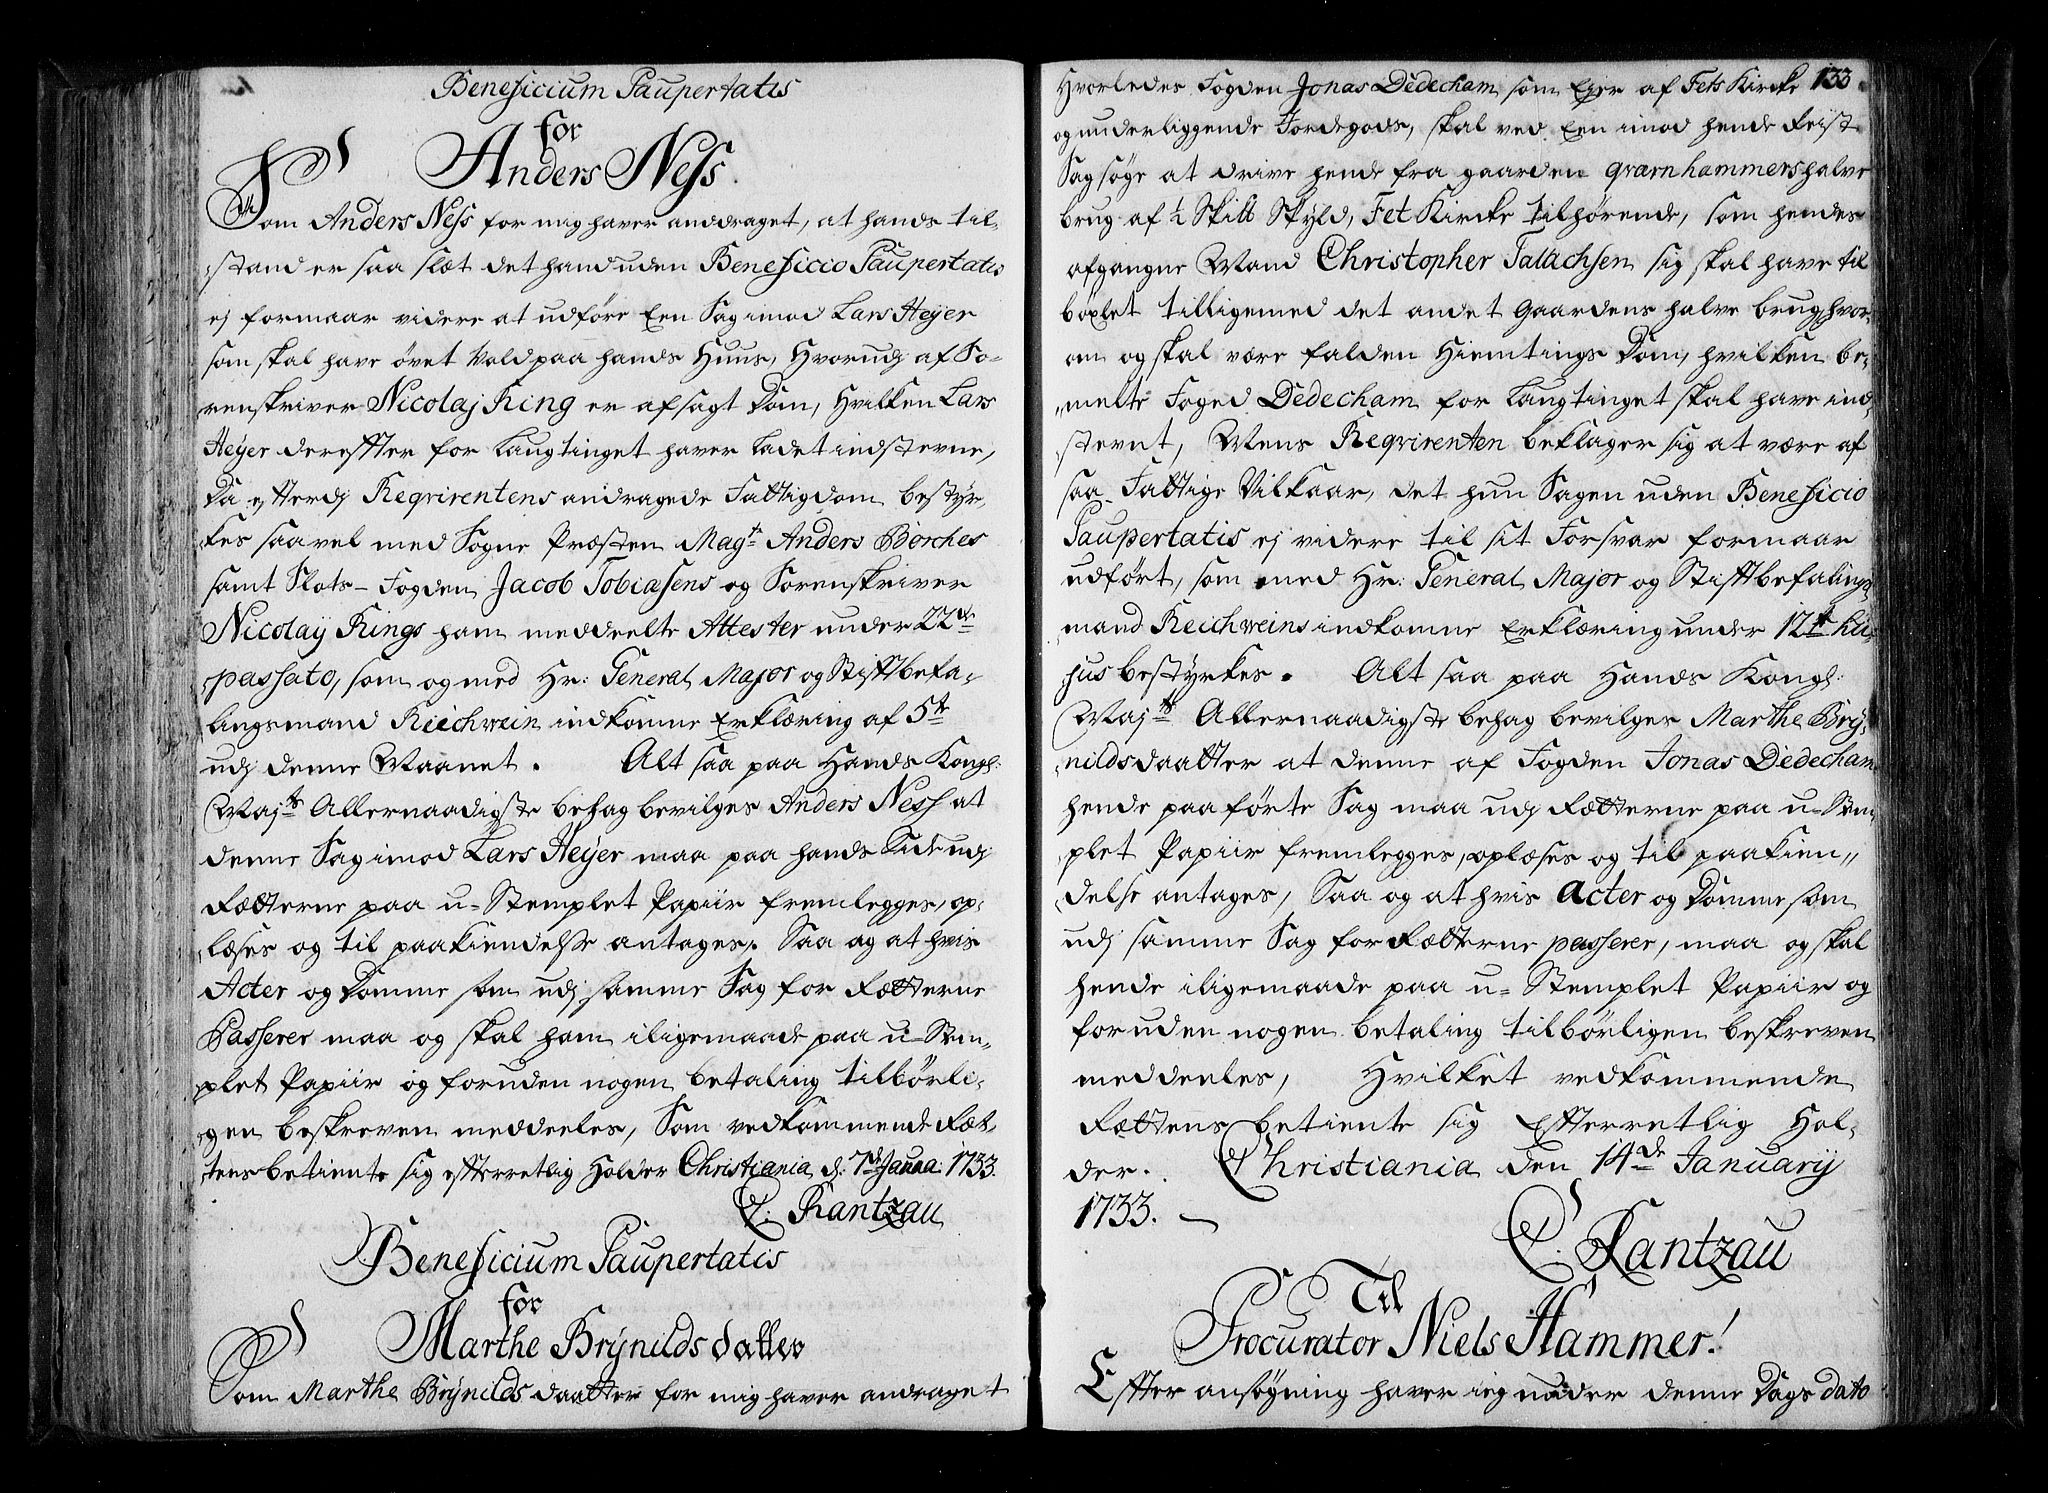 Beneficium Paupertatis
for
Anders Ness.
Som Anders Ness for mig haver anddraget, at hands til-
stand er saa slæt det hand uden Beneficio Paupertatis
ej formaar videre at udføre Een Sag imod Lars Heyer
som skal have øvet Vold paa hands Huus, Hvorudj af So-
renskriver Nicolaj Ring er afsagt Dom, Hvilken Lars
Heyer derefter for Laugtinget haver ladet indstevne,
Da efterdj Reqvirentens andragede Fattigdom bestyr-
kes saavel med Sogne Præsten Magr. Anders Borches
samt Slots-Fogden Jacob Tobiasens og Sorenskriver
Nicolaij Rings ham meddeelte Attester under 22de
passato, som og med Hr: General Major og Stiftbefa-
lingsmand Reichwein indkomne Erklæring af 5te
udj denne Maanet. Alt saa paa Hands Kongl:
Majts Allernaadigste behag bevilges Anders Ness at
denne Sag imod Lars Heyer maa paa hands Side udj
Rætterne paa u-Stemplet Papiir fremlegges, op-
læses og til paakiendelse antages. Saa og at hvis
Acter og Domme som udj samme Sag for Rætterne
Passerer maa og skal ham iligemaade paa u-Stem-
plet Papiir og foruden nogen betaling tilbørli-
gen beskreven meddeeles, Som vedkommende Ræt-
tens betiente sig efterretlig Holder Christiania d: 7de Janua: 1733.
C. Rantzau
Beneficium Paupertatis
for
Marthe Brÿnilds datter
Som Marthe Brÿnilds daatter for mig haver andraget
Hvorledes Fogden Jonas Dedecham som Ejer af Fets Kirke 133
og underliggende Jordegods, skal ved Een imod hende Reist
Sag søge at drive hende fra gaarden qvarnhammers halve
brug af ½ Skill Skyld, Fet Kircke tilhørende, som hendes
afgangne Mand Christopher Falachsen sig skal have til
bøxlet tilligemed det andet Gaardens halve brug, hvor-
om og skal være falden Hiemtings Dom, hvilken be-
melte Foged Dedecham for Laugtinget skal have ind-
stevnt, Mens Reqvirenten beklager sig at være af
saa Fattige Vilkaar, det hun Sagen uden Beneficio
Paupertatis ej videre til sit Forsvar formaar
udført, som med Hr: General Major og Stiftbefalings
mand Reichweins indkomne Erklæring under 12te hu-
jus bestyrkes. Alt saa paa Hands Kongl:
Majts Allernaadigste behag bevilges Marthe Brÿ-
nildsdaatter at denne af Fogden Jonas Dedecham
hende paaførte Sag maa udj Rætterne paa u-Stem-
plet Papiir fremlegges, oplæses og til paakien-
delse antages, Saa og at hvis Acter og Domme som
udj samme Sag for Rætterne passerer, maa og skal
hende iligemaade paa u-Stemplet Papiir og
foruden nogen betaling tilbørligen beskreven
meddeeles, Hvilket vedkommende
Rættens betiente sig Efterretlig Hol-
der. Christiania den 14de Januarij
1733.
C. Rantzau
Til
Procurator Niels Hammer!
Efter ansøgning haver ieg under denne Dags dato